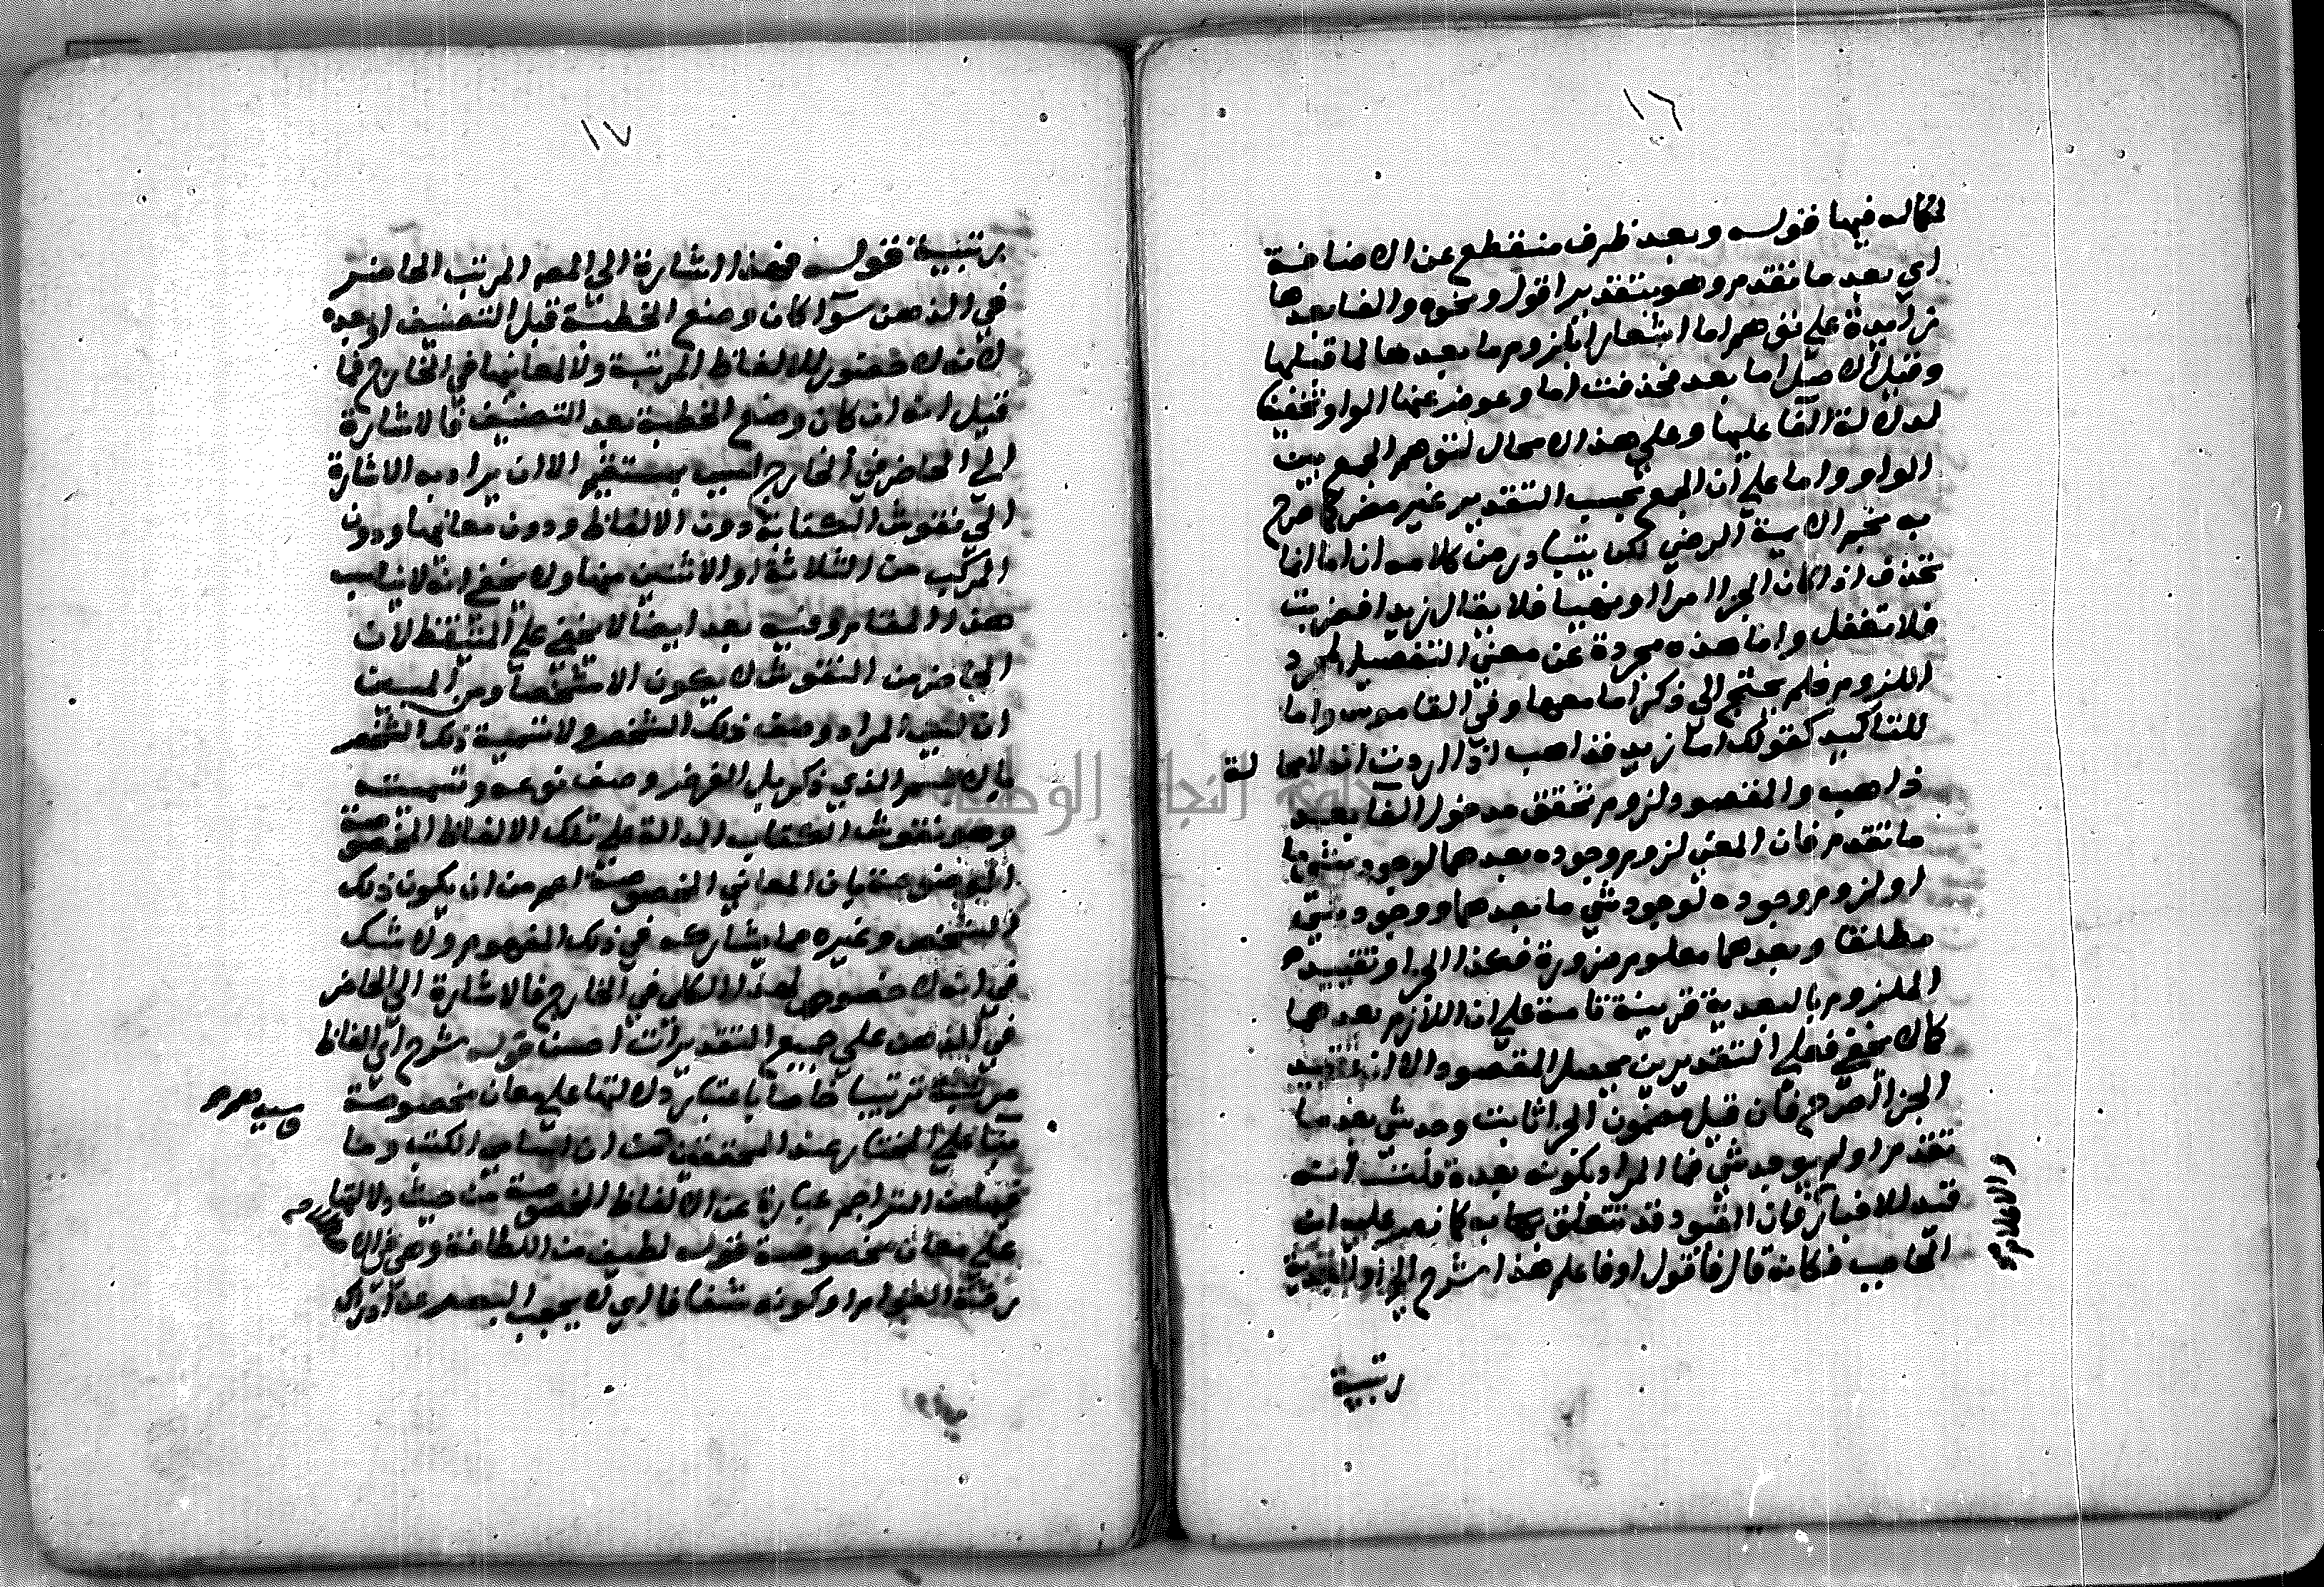 ١٦
لكماله فيها قوله وبعد ظرف منقطع عن الاضافة
اي بعد ما تقدم وهو بتقدير اقول ونحوه والفا بعدها
زايدة علي توهم اما اشعارا بلزوم ما بعدها لما قبلها
وقيل الاصل اما بعد فحذفت اما وعوض عنها الواو
لدلالة الفا عليها وعلي هذا لا مجال لتوهم الجمع بين
الواو واما علي ان الجمع بحسب التقدير غير مضر كما صرح
به نجم الايمة الرضي لكن يتبادر من كلامه ان اما انما
تحذف اذا كان الجزا امرا او نهيا فلا يقال زيدا فضربت
فلا تغفل واما هذه مجردة عن معني التفصيل لمجرد
اللزوم فلم يحتج الي ذكر اما معها وفي القاموس واما
للتاكيد كقولك اما زيد فذاهب اذا اردت انه لا محالة
ذاهب والمقصود لزوم تحقق مدخول الفا بعد
ما تقدم فان المعني لزوم وجوده بعدهما لوجود شي ما
او لزوم وجوده لوجود شي ما بعدهما ووجود شي
مطلقا وبعدهما معلوم ضرورة فكذا الجزا وتقييد
الملزوم بالبعدية قرينة تامة علي ان اللازم بعدهما
كما لا يخفي فعلي التقديرين يحصل المقصود الا ان تقييد
الجزا اصرح فان قيل مضمون الجزا ثابت وجد شي بعد ما
تقدم او لم يوجد شي فما المراد بكونه بعده قلت انه
قيد للاخبار فان القيود قد تتعلق به كما نص عليه ابن
الحاجب فكانه قال فاقول او فاعلم هذا شرح الخ او البعدية
والاعلام
رتبية
١٧
رتبية قوله فهذا اشارة الي المص المرتب الحاضر
في الذهن سوا كان وضع الخطبة قبل التصنيف او بعده
لانه لا حضور للالفاظ المرتبة ولا لمعانيها في الخارج فما
قيل انه ان كان وضع الخطبة بعد التصنيف فالاشارة
الي الحاضر في الخارج ليس بمستقيم الا ان يراد به الاشارة
الي نقوش الكتابة دون الالفاظ ودون معانيها ودون
المركب من الثلاثة او الاثنين منها ولا يخفي انه لا يناسب
هذا المقام وفيه بعد ايضا لا يخفي علي المتيقظ لان
الحاضر من النقوش لا يكون الا شخصا ومن البين
ان ليس المراد وصف ذلك الشخص ولا تسمية ذلك الشخص
بالاسم الذي ذكر بل الغرض وصف نوعه وتسميته
وهو نقوش الكتاب الدالة علي تلك الالفاظ المخصوصة
الموضوعة بازا المعاني المخصوصة اعم من ان يكون ذلك
الشخص وغيره مما يشاركه في ذلك المفهوم ولا شك
في انه لا حضور لهذا الكلي في الخارج فالاشارة الي الحاضر
في الذهن علي جميع التقديرات احسن قوله شرح اي الفاظ
مرتبة ترتيبا خاصا باعتبار دلالتها علي معان مخصوصة
بنا علي المختار عند المحققين من ان اسامي الكتب وما
فيها من التراجم عبارة عن الالفاظ المخصوصة من حيث دلالتها
علي معان مخصوصة قوله لطيف من اللطافة وهي في الا
رقة القوام او كونه شفافا اي لا يحجب البصر عن ادراك